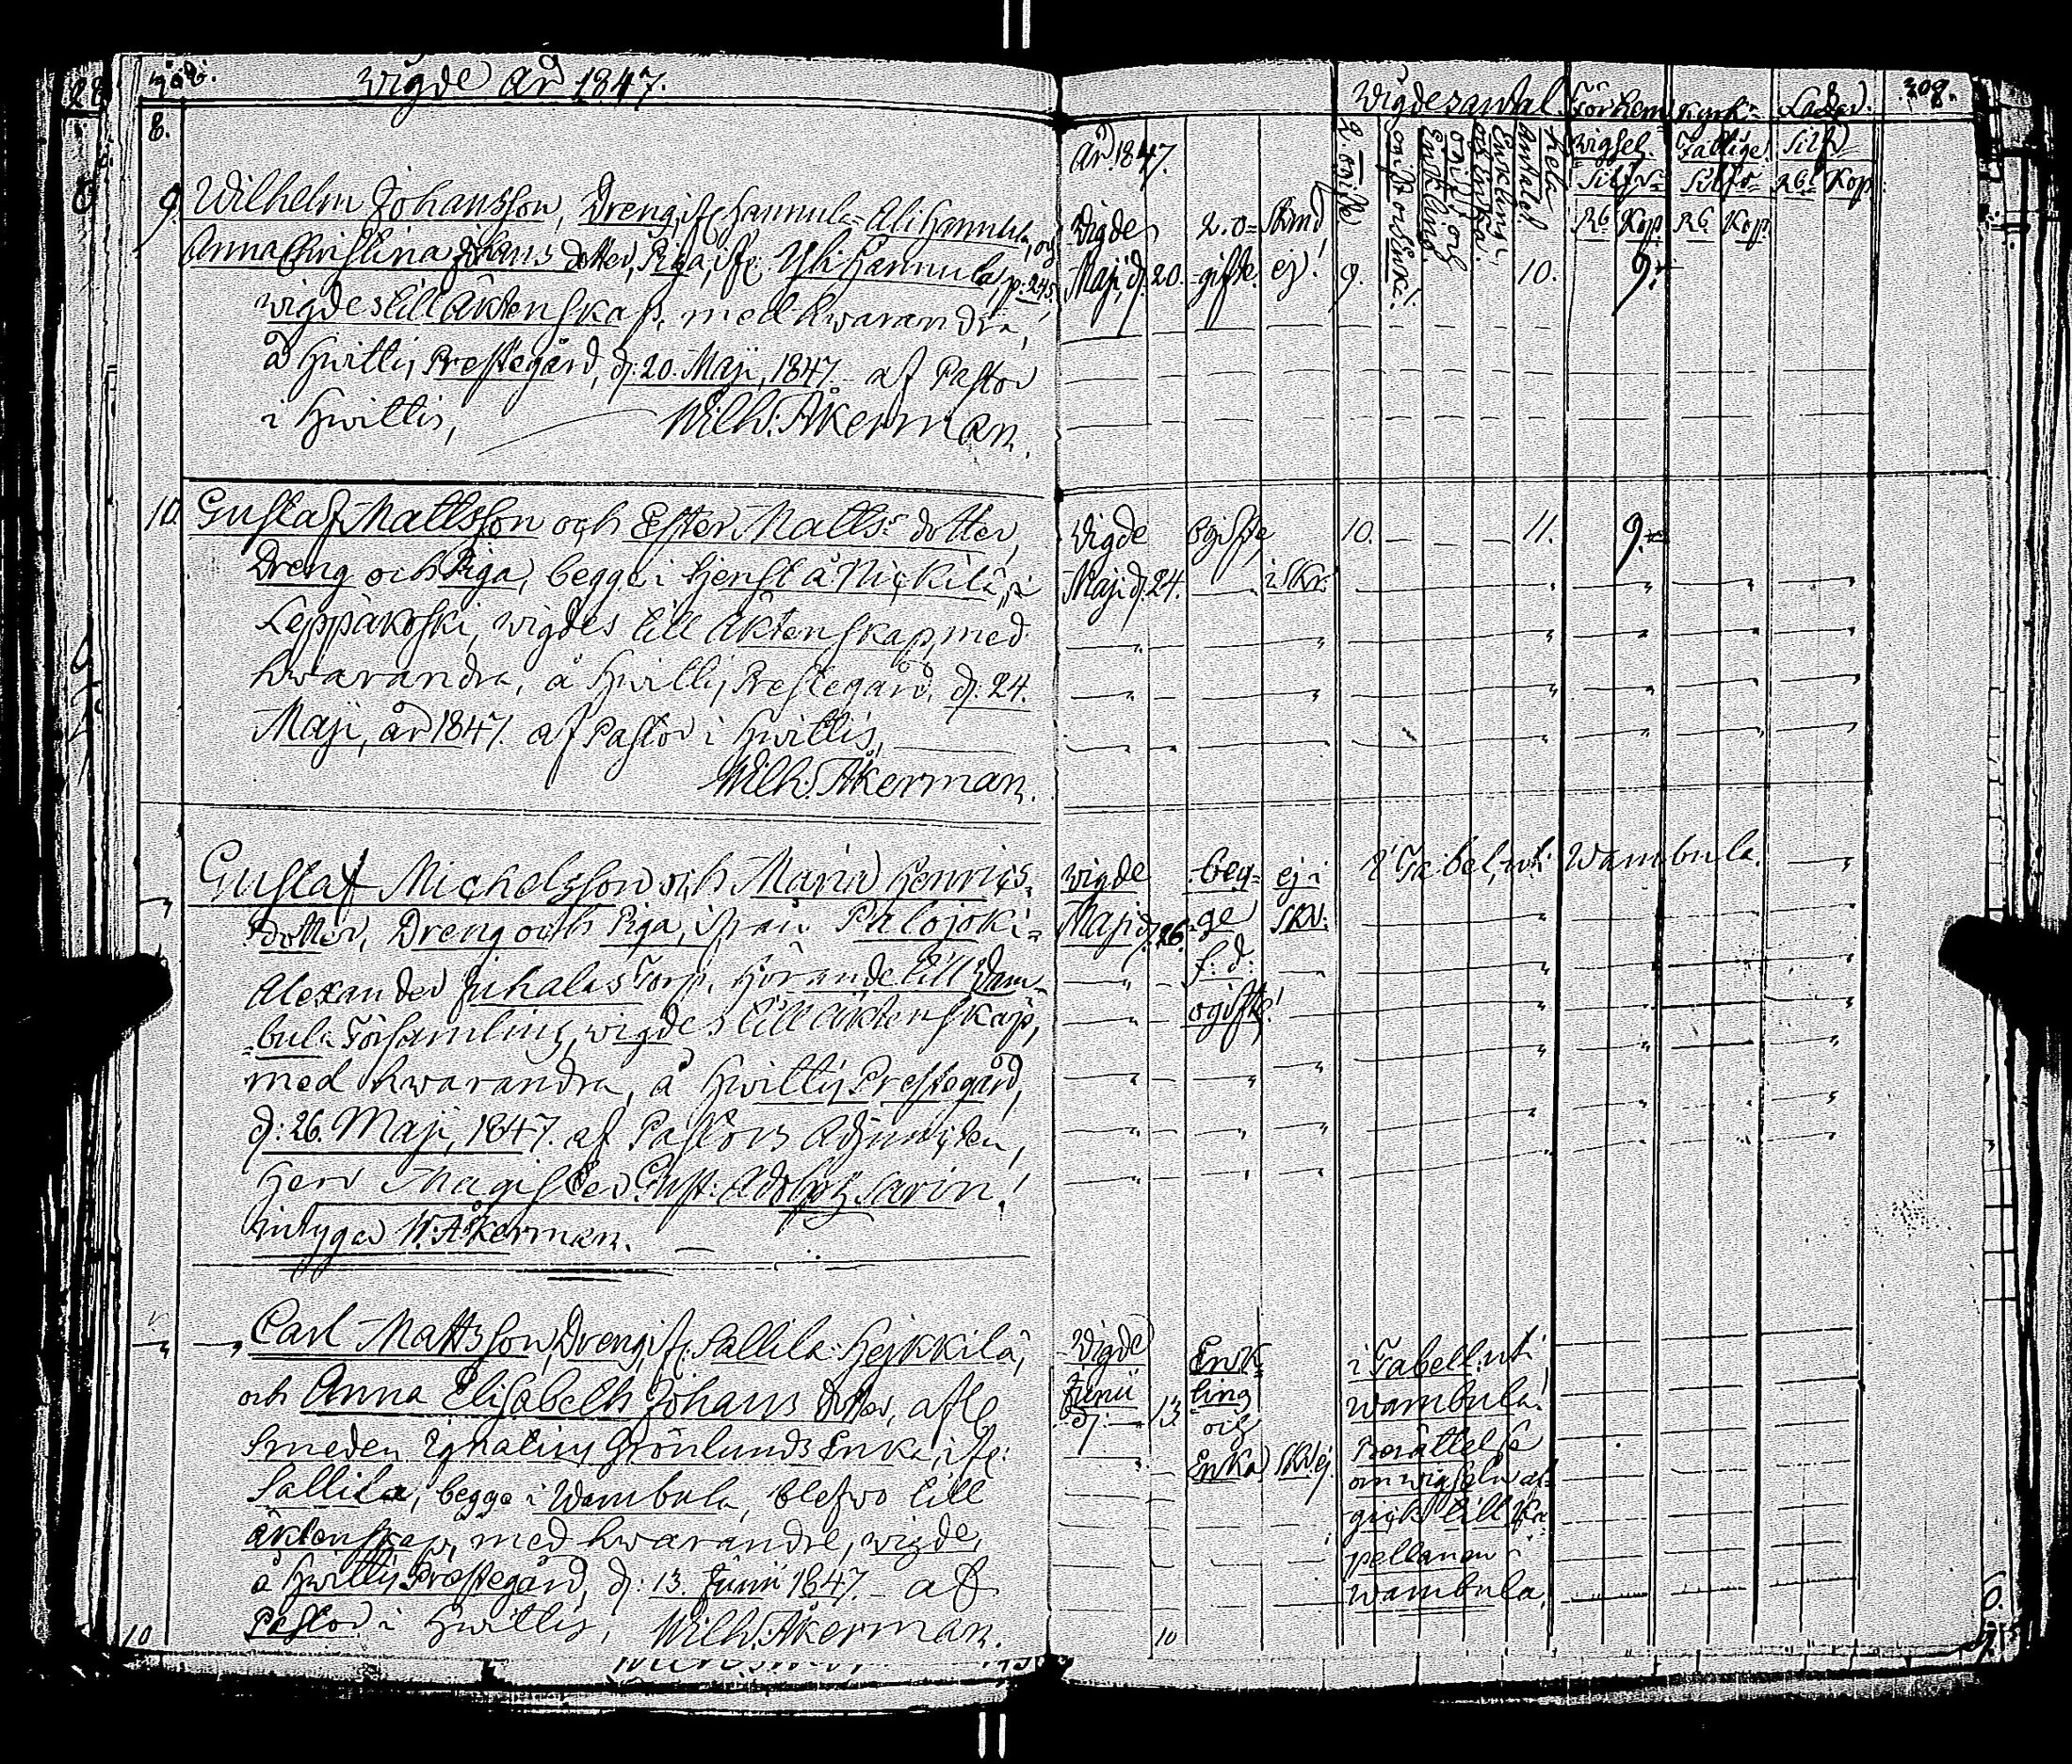 Wigde År 1847.
8.
9. Wilhelm Johansson, Dreng, ifr. Hannula Ali Hannula, och
Anna Christina Johans dotter, Piga, ifr. Yli Hannula, p. 245,
wigdes till Äktenskap, med hwarandra,
å Hwittis Prestegård, d: 20. Maji, 1847. af Pastor
i Hwittis, Wilh: Åkerman.
10. Gustaf Mattsson och Ester Matts dotter,
Dreng och Piga, begge i tjenst å Nickilä, i
Leppäkoski, wigdes till Äktenskap, med
hwarandra, å Hwittis Prestegård, d: 24.
Maji, år 1847. af Pastor i Hwittis,
Wilh: Åkerman.
Gustaf Michelsson och Maria Henrics-
dotter, Dreng och Piga, ifrån Palojoki-
Alexander Juhalas Torp, hörande till Wam-
bula Församling, wigdes till äktenskap,
med hwarandra, å Hwittis Prestegård,
d: 26. Maji, 1847. af Pastors Adjuncten,
Herr Magister Gust: Adolph Sarin!
intygar W: Åkerman.
Carl Mattsson, Dreng, ifr. Sallila Hejkkilä,
och Anna Elisabeth Johans dotter, afl.
Smeden Ignatius Grönlunds Enka, ifr:
Sallila, begge i Wambula, blefwo till
äktenskap, med hwarandra, wigde,
å Hwittis Prestegård, d: 13. Junii 1847. af
Pastor i Hwittis, Wilh: Åkerman.
10
År 1847.
Wigdes antal
För hem
Kyrk-
308.
wigsel.
Fattige
Silf
Silfv-
Silfv-
Rb. Kop
Rb Kop
Rb Kop.
Wigde 2. o-
Maji, d. 20. gifte. ej! 9. 10. 9.
Wigde Ogifte 10. 11. 9.
Maji d. 24. i Skr:
Wigde beg- ej i i Tabel, uti Wambula.
Maji d. 26. ge Skr:
f: d:
ogifte!
Wigde Enk- i Tabell. uti
Junii ling Wambula!
d: 13 och Berättelse
Enka Skr ej om wigseln af-
gick till Ka-
pellanen i
Wambula.
10